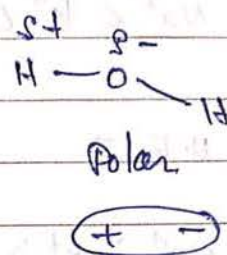 δ+ δ-
H — O
H
Polar
+ -